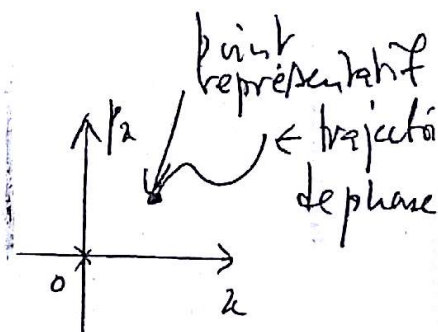 point
représentatif
← trajectoi
de phase
Px
0
x